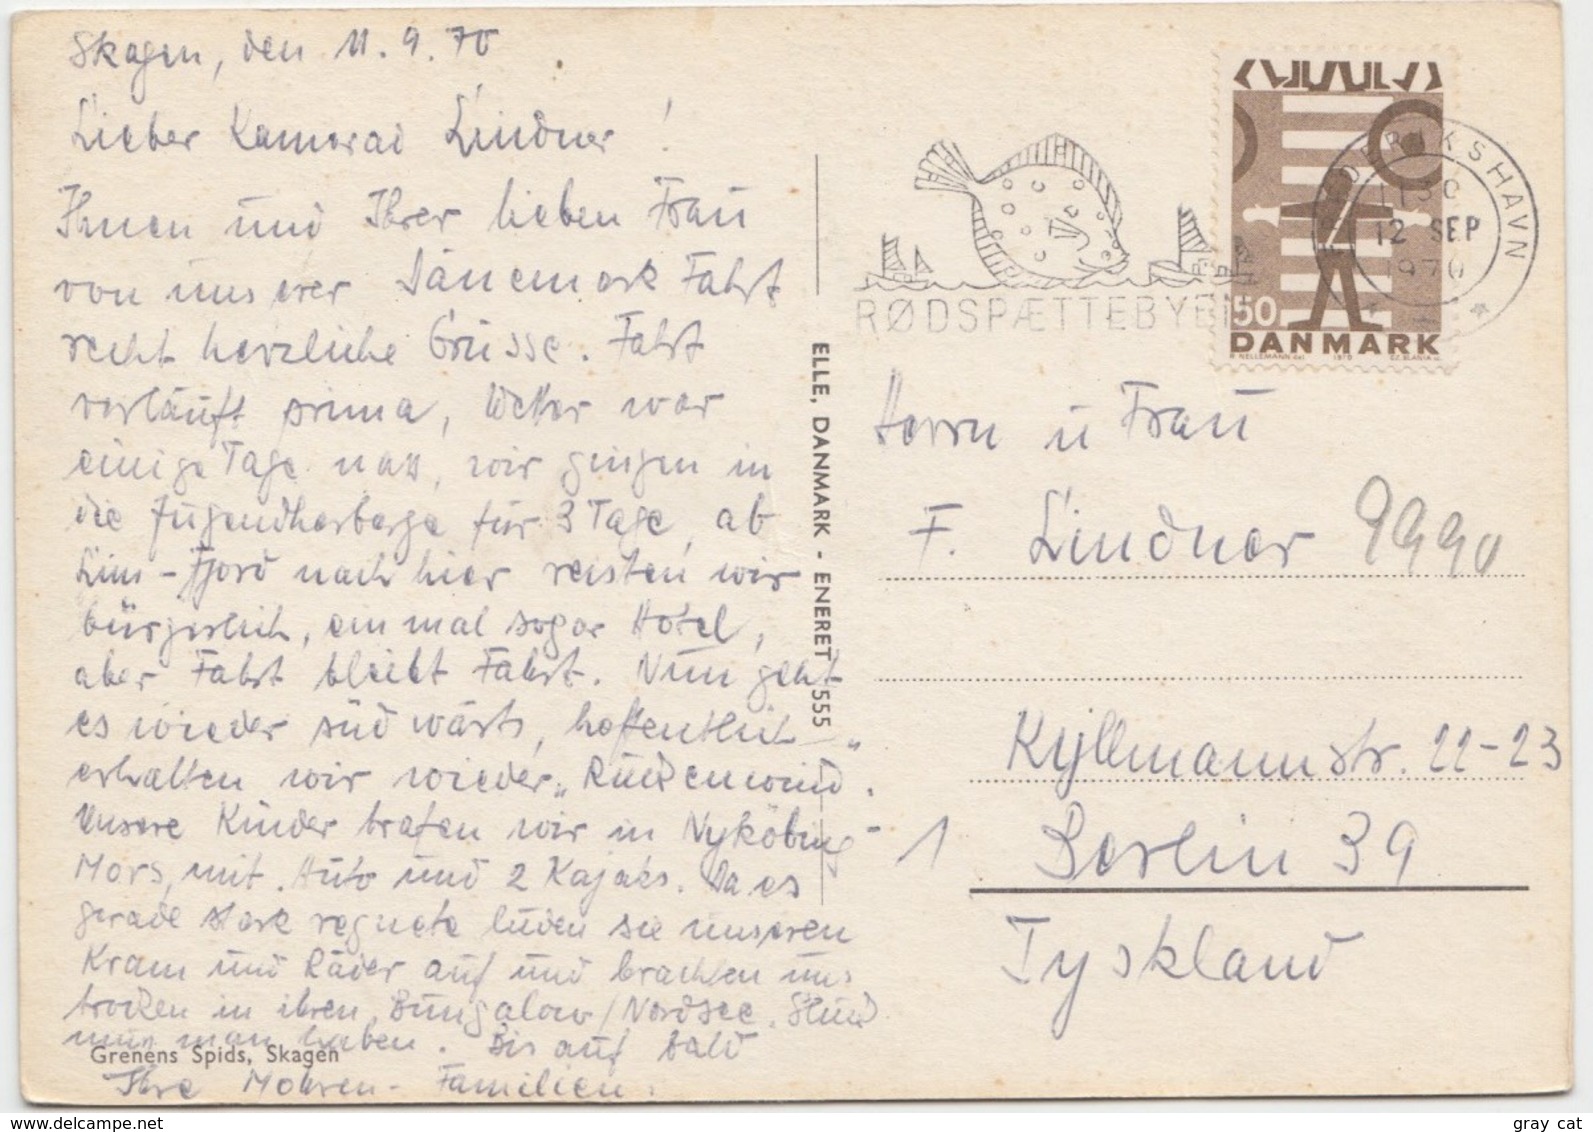 Skagen, den 11.9.70
Lieber Kamerad Lindner!
Ihnen und Ihrer lieben Frau
von unserer Dänemark Fahrt
recht herzliche Grüsse. Fahrt
verläuft prima, Wetter war
einige Tage nass, wir gingen in
die Jugendherberge für 3 Tage, ab
Lim-Fjord nach hier reisten wir
bürgerlich, einmal sogar Hotel,
aber Fahrt bleibt Fahrt. Nun geht
es wieder südwärts, hoffentlich
erhalten wir wieder „Rückenwind".
Unsere Kinder trafen wir in Nyköbing-
Mors, mit Auto und 2 Kajaks. Da es
gerade stark regnete luden sie unseren
Kram und Räder auf und brachten uns
trocken in ihren Bungalow/Nordsee.
muss man haben. Bis auf bald
Ihre Mohren-Familien.
Grenens Spids, Skagen
ELLE, DANMARK - ENERET 7555
RØDSPÆTTEBYEN
FREDERIKSHAVN
1130
12 SEP
1970
50
DANMARK
R NELLEMANN del. 1970 CZ. SLANIA sc.
Herrn u Frau
F. Lindner 9990
Kyllmannstr. 22-23
1 Berlin 39
Tyskland
www.delcampe.net
gray cat